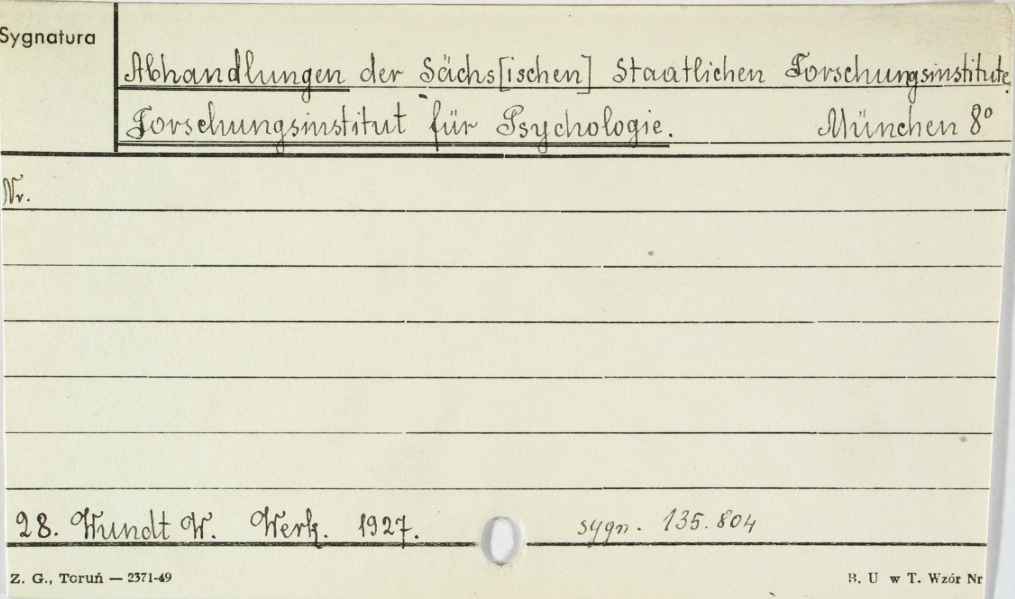 Sygnatura
Abhandlungen der Sächs[ischen] Staatlichen Forschungsinstitute.
Forschungsinstitut für Psychologie. München 8°
Nr.
28. Wundt W. Werk. 1927. sygn. 135.804
Z. G., Toruń — 2371-49 B. U w T. Wzór Nr